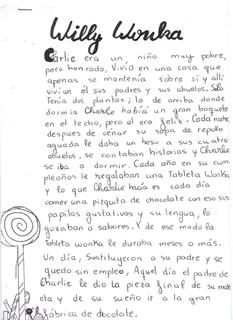 Willy Wonka
Carlie era un, niño muy pobre,
pero honrado, Vivía en una casa que
apenas se mantenía sobre sí y allí
vivían él sus padres y sus abuelos. Solo
Tenía dos plantas; la de arriba donde
dormía Charlie había un gran boquete
en el techo, pero al era feliz. Cada noche
despues de cenar su sopa de repollo
aguada le daba un beso a sus cuatro
abuelos, se contaban historias y Charlie
se iba a dormir. Cada año en su cum
pleaños le regalaban una Tableta Wonka
y lo que Charlie hacía es cada día
comer una pizquita de chocolate con eso sus
papilas gustativas y su lengua, lo
gozaban a sabores. Y de ese modo la
Tableta wonka le duraba meses o más.
Un día, Sustituyeron a su padre y se
quedo sin empleo, Aquel día el padre de
Charlie le dio la pieza final de su maq
eta y de su sueño ir a la gran
fábrica de chocolate.